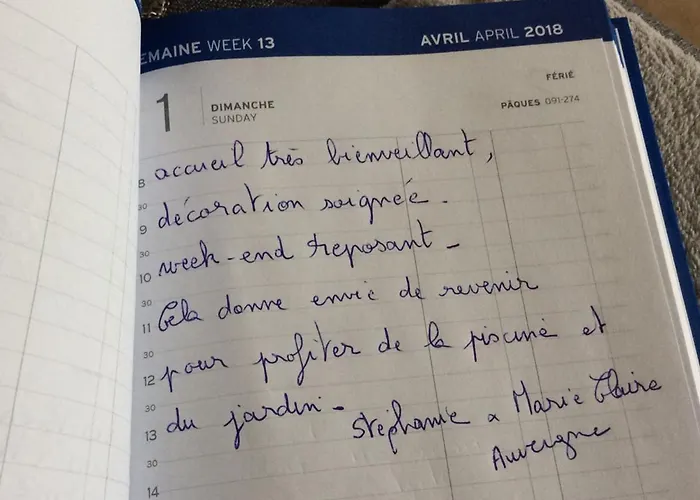 EMAINE WEEK 13
AVRIL APRIL 2018
1
DIMANCHE
SUNDAY
FÉRIÉ
PÂQUES 091-274
8 accueil très bienveillant,
30
9 décoration soignée.
30
10 week-end reposant -
30
11 Cela donne envie de revenir
30
12 pour profiter de la piscine et
30
13 du jardin - Stéphanie & Marie Claire
30
Auvergne
14